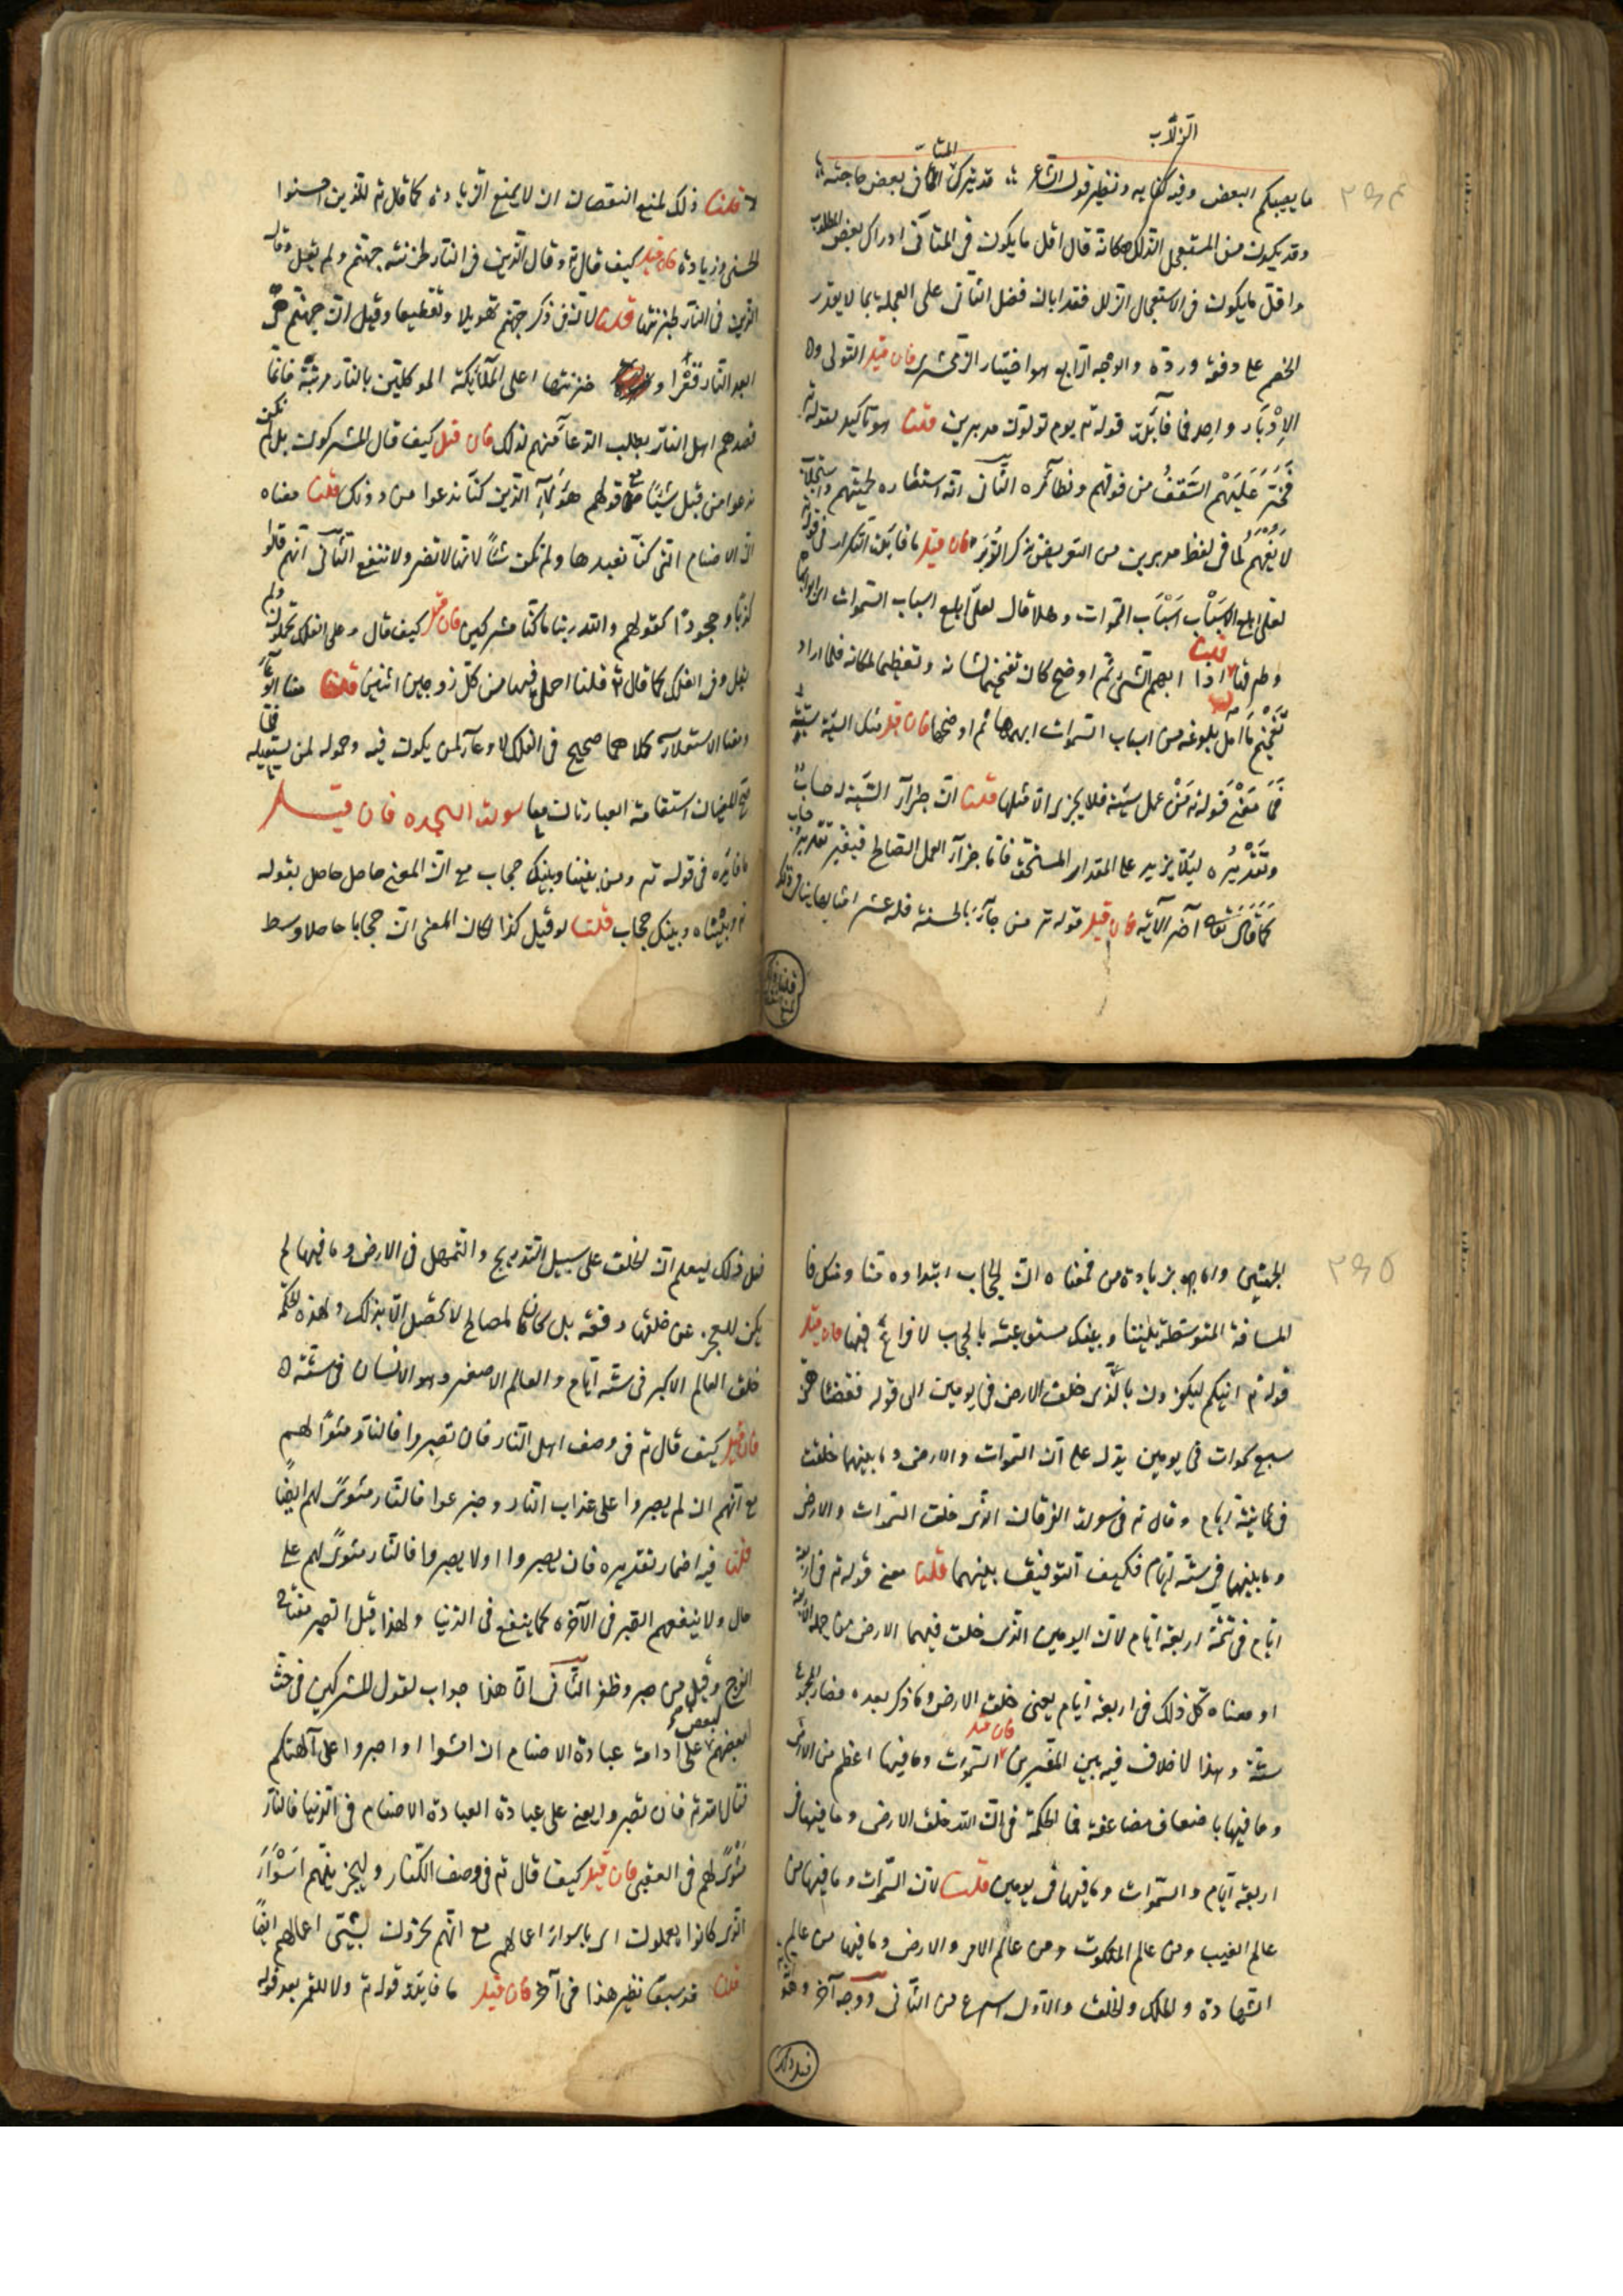 الزلات
ما يعيبكم البعض وفيه كفايه ونظير قول الشاعر قد يدرك المتأنى بعض حاجته
وقد يكون من المستعجل الزلل فكانه قال اقل ما يكون فى المتأنى ادراك بعض المطلوب
واقل ما يكون فى الاستعجال الزلل فقد ابان فضل التانى على العجلة بما لا يقدر
الخصم على دفعه ورده والوجه الرابع هو اختيار الزمخشرى فان قيل التولى و
الإدبار واحد فما فائدة قوله تع يوم تولون مدبرين قلنا هو تأكيد لقوله تع
فخر عليهم السقف من فوقهم ونظائره الثانى انه استثاره لحميتهم واستجلاب
لانفتهم لما فى لفظ مدبرين من التعريض بذكر الدبر فان قيل ما فائدة التكرار فى قوله
لعلى ابلغ الاسباب اسباب السموات وهلا قال لعلى ابلغ اسباب السموات اى ابوابها
وطرقها قلنا اذا ابهم الشئ ثم اوضح كان تفخيما لشانه وتعظيما لمكانه فلما اراد
تفخيم ما امل بلوغه من اسباب السموات ابهمها ثم اوضحها فان قيل مثل السيئة سيئة
فما معنى قوله تع من عمل سيئة فلا يجزى الا مثلها قلنا ان جزآء السيئة له حساب
وتقديره لئلا يزيد على المقدار المستحق فاما جزآء العمل الصالح فبغير تقدير حساب
كما قال تعالى آخر الآية فان قيل قوله تع من جآء بالحسنة فله عشر امثالها ينافى ذلك
قلنا ذلك لمنع النقصان لا لمنع الزيادة كما قال تع للذين احسنوا
الحسنى وزيادة فان قيل كيف قال تع وقال الذين فى النار لخزنة جهنم ولم يقل وقال
الذين فى النار لخزنتها قلنا لان فى ذكر جهنم تهويلا وتفظيعا وقيل ان جهنم هى
ابعد النار قعرا و خزنتها اعلى الملآئكة الموكلين بالنار مرتبة فانما
قصدهم اهل النار بطلب الدعآء منهم لذلك فان قيل كيف قال المشركون بل لم نكن
ندعوا من قبل شيئا مع قولهم هؤلاء الذين كنا ندعوا من دونك قلنا معناه
ان الاصنام التى كنا نعبدها ولم تكن شيأ لانها لا تضر ولا تنفع الثانى انهم قالوا
كذبا وجحودا كقولهم والله ربنا ما كنا مشركين فان قيل كيف قال وعلى الفلك تحملون ولم
يقل وفى الفلك كما قال تع قلنا احمل فيها من كل زوجين اثنين قلنا معنا الوعآء
ومعنا الاستعلآء كلاهما صحيح فى الفلك لانه وعآء لمن يكون فيه وحموله لمن يستعليه فلما
صح المعنيان استقامت العبارتان معا سورة السجدة فان قيل
ما فائدة فى قوله تع ومن بيننا وبينك حجاب مع ان المعنى حاصل بقوله
تع وبيننا وبينك حجاب قلنا لو قيل كذا لكان المعنى ان حجابا حاصلا وسط
الجهتين واما بزيادة من فمعناه ان الحجاب ابتداوه منا ومنك فا
المسافة المتوسطة بيننا وبينك مستوعبة بالحجاب لا فراغ فيها فان قيل
قوله تع ائنكم لتكفرون بالذى خلق الارض فى يومين الى قوله فقضاهن
سبع سموات فى يومين يدل على ان السموات والارض وما بينهما خلقت
فى ثمانية ايام وقال تع فى سورة الفرقان الذى خلق السموات والارض
وما بينهما فى ستة ايام فكيف التوفيق بينهما قلنا معنى قوله تع فى اربعة
ايام فى تتمة اربعة ايام لان اليومين الذى خلق فيهما الارض من جملة الاربعة
او معناه كل ذلك فى اربعة ايام يعنى خلق الارض وما ذكر بعده فصار المجموع
ستة وهذا لا خلاف فيه بين المفسرين فان قيل السموات وما فيها اعظم من الارض
وما فيها باضعاف مضاعفة فما الحكمة فى ان الله خلق الارض وما فيها فى
اربعة ايام والسموات وما فيها فى يومين قلنا لان السموات وما فيها من
عالم الغيب ومن عالم الملكوت ومن عالم الامر والارض وما فيها من عالم
الشهادة والملك والخلق والاول اسرع من الثانى ووجه آخر وهو
فعل ذلك ليعلم ان الخلق على سبيل التدريج والتمهل فى الارض وما فيها لم
يكن للعجز عن خلقها دفعة بل كان لمصالح لا تحصل الا بذلك ولهذه الحكمة
خلق العالم الاكبر فى ستة ايام والعالم الاصغر وهو الانسان فى ستة
فان قيل كيف قال تع فى وصف اهل النار فان تصبروا فالنار مثوى لهم
مع انهم ان لم يصبروا على عذاب النار وجزعوا فالنار مثوى لهم ايضا
قلنا فيه اضمار تقديره فان يصبروا اولا يصبروا فالنار مثوى لهم على
حال ولا ينفعهم الصبر فى الآخره كما ينفع فى الدنيا ولهذا قيل الصبر مفتاح
الفرج وقيل من صبر وظفر الثانى ان هذا جواب لقول المشركين فى حث
بعضهم لبعض على ادامة عبادة الاصنام ان امشوا واصبروا على آلهتكم
فقال الله تع فان تصبروا يعنى على عبادة العبادة الاصنام فى الدنيا فالنار
مثوى لهم فى العقبى فان قيل كيف قال تع فى وصف الكفار وليجزينهم اسوأ
الذى كانوا يعملون اى باسوأ اعمالهم مع انهم يجزون بسيئ اعمالهم ايضا
قلنا قد سبق نظير هذا فى آخر فان قيل ما فايدة قوله تع ولا للقمر بعد قوله